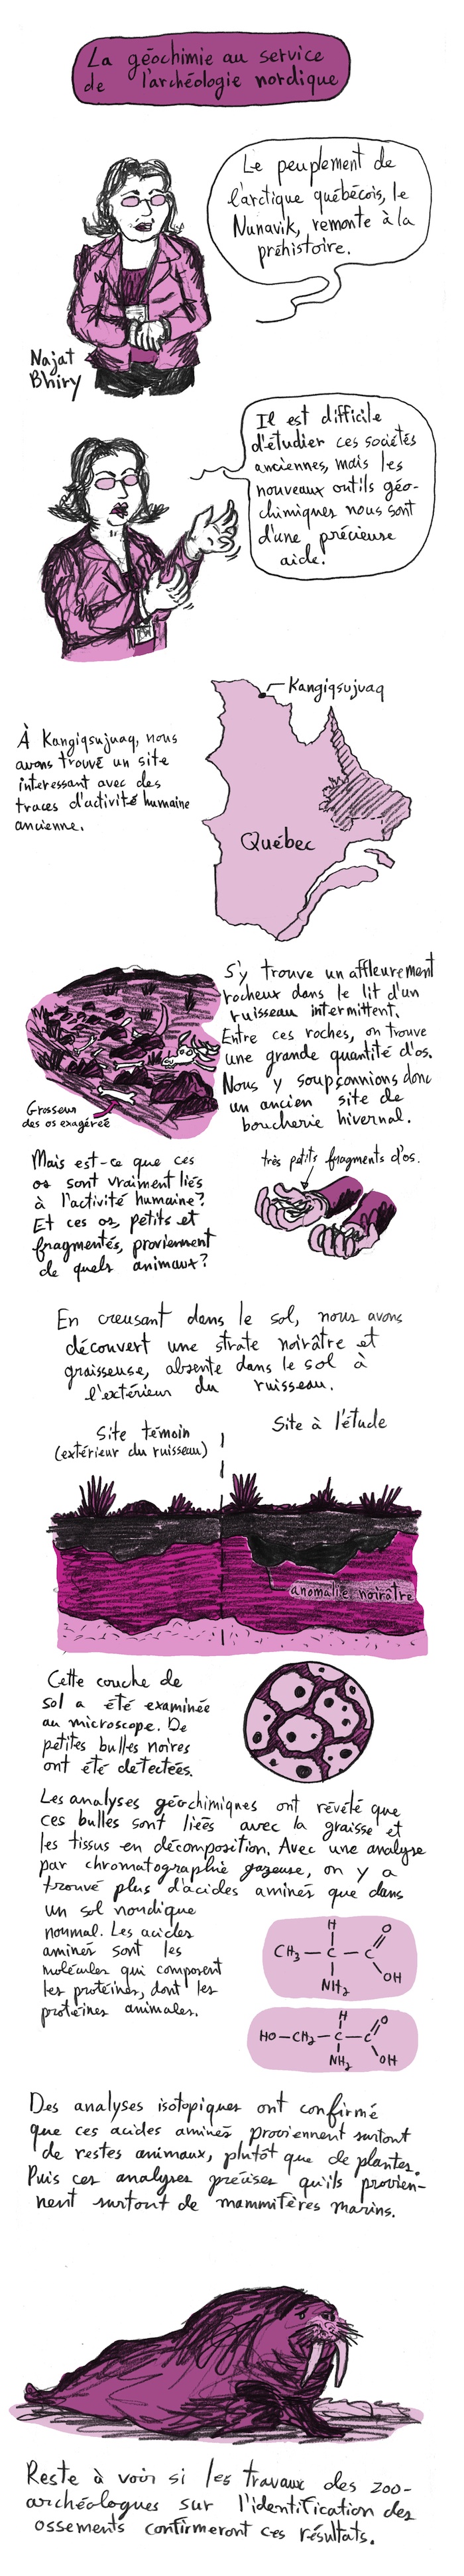 La géochimie au service
de l'archéologie nordique
Le peuplement de
l'arctique québécois, le
Nunavik, remonte à la
préhistoire.
Najat
Bhiry
Il est difficile
d'étudier ces sociétés
anciennes, mais les
nouveaux outils géo-
chimiques nous sont
d'une précieuse
aide.
Kangiqsujuaq
À Kangiqsujuaq, nous
avons trouvé un site
interessant avec des
traces d'activité humaine
ancienne.
Québec
S'y trouve un affleurement
rocheux dans le lit d'un
ruisseau intermittent.
Entre ces roches, on trouve
une grande quantité d'os.
Nous y soupçonnions donc
un ancien site de
boucherie hivernal.
Grosseur
des os exagéreé
Mais est-ce que ces
os sont vraiment liés
à l'activité humaine?
Et ces os, petits et
fragmentés, proviennent
de quels animaux?
très petits fragments d'os.
En creusant dans le sol, nous avons
découvert une strate noirâtre et
graisseuse, absente dans le sol à
l'extérieur du ruisseau.
Site témoin
(extérieur du ruisseau)
Site à l'étude
anomalie noirâtre
Cette couche de
sol a été examinée
au microscope. De
petites bulles noires
ont été detectées.
Les analyses géochimiques ont révélé que
ces bulles sont liées avec la graisse et
les tissus en décomposition. Avec une analyse
par chromatographie gazeuse, on y a
trouvé plus d'acides aminés que dans
un sol nordique
normal. Les acides
aminés sont les
molécules qui composent
les protéines, dont les
protéines animales.
H
CH₃ — C — C
O
OH
NH₂
H
HO — CH₂ — C — C
O
OH
NH₂
Des analyses isotopiques ont confirmé
que ces acides aminés proviennent surtout
de restes animaux, plutôt que de plantes.
Puis ces analyses précises qu'ils provien-
nent surtout de mammifères marins.
Reste à voir si les travaux des zoo-
archéologues sur l'identification des
ossements confirmeront ces résultats.